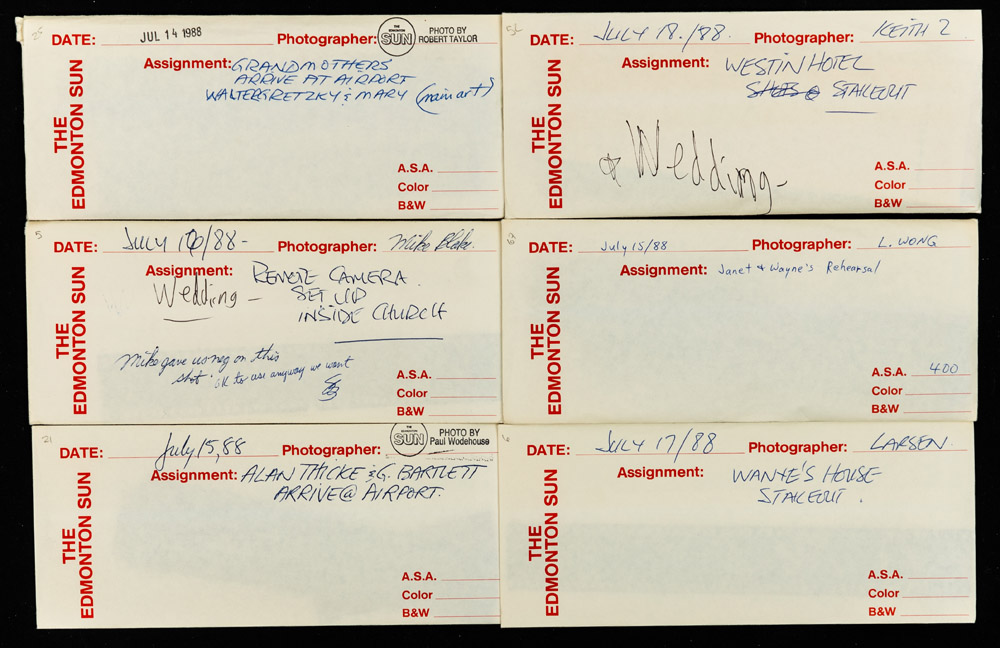 25
DATE: JUL 14 1988 Photographer: THE EDMONTON SUN PHOTO BY ROBERT TAYLOR
Assignment: GRANDMOTHERS
ARRIVE AT AIRPORT
WALTER GRETZKY & MARY (main art)
THE EDMONTON SUN
A.S.A.
Color
B&W
DATE: JULY 18./88. Photographer: KEITH Z
Assignment: WESTIN HOTEL
STAKEOUT
Wedding -
THE EDMONTON SUN
A.S.A.
Color
B&W
5
DATE: JULY 16/88- Photographer: Mike Blake
Assignment: REMOTE CAMERA
Wedding - SET UP
INSIDE CHURCH
Mike gave us neg on this
shot. ok to use anyway we want
THE EDMONTON SUN
A.S.A.
Color
B&W
DATE: July 15/88 Photographer: L. WONG
Assignment: Janet & Wayne's Rehearsal
THE EDMONTON SUN
A.S.A. 400
Color
B&W
21
DATE: July 15, 88 Photographer: THE EDMONTON SUN PHOTO BY Paul Wodehouse
Assignment: ALAN THICKE & G. BARTLETT
ARRIVE @ AIRPORT.
THE EDMONTON SUN
A.S.A.
Color
B&W
6
DATE: JULY 17/88 Photographer: LARSEN
Assignment: WANYE'S HOUSE
STAKEOUT.
THE EDMONTON SUN
A.S.A.
Color
B&W